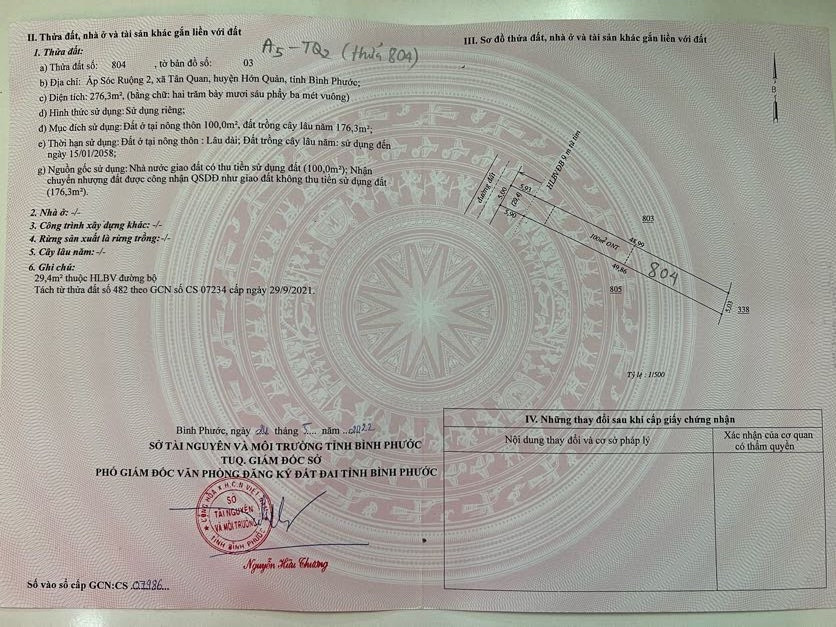 II. Thửa đất, nhà ở và tài sản khác gắn liền với đất
A5 - TQ2 (thửa 804)
1. Thửa đất:
a) Thửa đất số: 804 , tờ bản đồ số: 03
b) Địa chỉ: Ấp Sóc Ruộng 2, xã Tân Quan, huyện Hớn Quản, tỉnh Bình Phước;
c) Diện tích: 276,3m², (bằng chữ: hai trăm bảy mươi sáu phẩy ba mét vuông)
d) Hình thức sử dụng: Sử dụng riêng;
đ) Mục đích sử dụng: Đất ở tại nông thôn 100,0m², đất trồng cây lâu năm 176,3m²;
e) Thời hạn sử dụng: Đất ở tại nông thôn : Lâu dài; Đất trồng cây lâu năm: sử dụng đến
ngày 15/01/2058;
g) Nguồn gốc sử dụng: Nhà nước giao đất có thu tiền sử dụng đất (100,0m²); Nhận
chuyển nhượng đất được công nhận QSDĐ như giao đất không thu tiền sử dụng đất
(176,3m²).
2. Nhà ở: -/-
3. Công trình xây dựng khác: -/-
4. Rừng sản xuất là rừng trồng: -/-
5. Cây lâu năm: -/-
6. Ghi chú:
29,4m² thuộc HLBV đường bộ
Tách từ thửa đất số 482 theo GCN số CS 07234 cấp ngày 29/9/2021.
Bình Phước, ngày 24 tháng 5 năm 2022
SỞ TÀI NGUYÊN VÀ MÔI TRƯỜNG TỈNH BÌNH PHƯỚC
TUQ. GIÁM ĐỐC SỞ
PHÓ GIÁM ĐỐC VĂN PHÒNG ĐĂNG KÝ ĐẤT ĐAI TỈNH BÌNH PHƯỚC
CỘNG HÒA X.H.C.N VIỆT NAM
SỞ
TÀI NGUYÊN
VÀ MÔI TRƯỜNG
TỈNH BÌNH PHƯỚC
Nguyễn Hữu Thương
Số vào sổ cấp GCN:CS 07986
III. Sơ đồ thửa đất, nhà ở và tài sản khác gắn liền với đất
B
đường đất
HLBV-ĐB 9 m từ tim
5,00
5,93
(29,4)
5,90
803
100m² ONT
48,99
804
49,86
805
5,03
338
Tỷ lệ : 1/500
IV. Những thay đổi sau khi cấp giấy chứng nhận
Nội dung thay đổi và cơ sở pháp lý
Xác nhận của cơ quan
có thẩm quyền